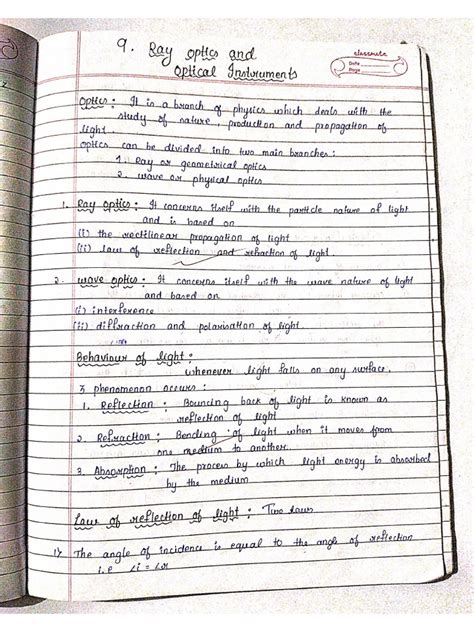 9. Ray optics and
Optical Instruments
classmate
Date
Page
Optics : It is a branch of physics which deals with the
study of nature, production and propagation of
light.
Optics can be divided into two main branches :
1. Ray or geometrical optics
2. wave or physical optics
1. Ray Optics : It concerns itself with the particle nature of light
and is based on
(i) the rectilinear propagation of light
(ii) laws of reflection and refraction of light.
2. wave optics : It concerns itself with the wave nature of light
and based on
(i) interference
(ii) diffraction and polarisation of light.
Behaviour of light :
whenever light falls on any surface,
3 phenomenon occurs :
1. Reflection : Bouncing back of light is known as
reflection of light
2. Refraction : Bending of light when it moves from
one medium to another.
3. Absorption : The process by which light energy is absorbed
by the medium
Laws of reflection of light : Two laws
1) The angle of incidence is equal to the angle of reflection
i.e ∠i = ∠r